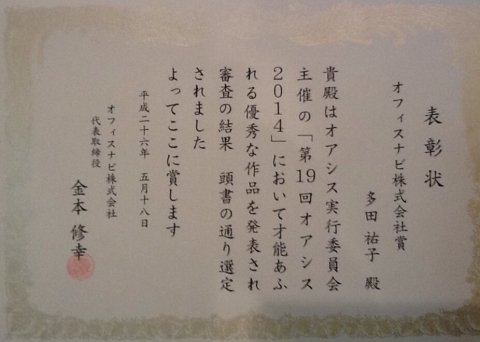 表彰状
オフィスナビ株式会社賞
多田 祐子 殿
貴殿はオアシス実行委員会
主催の「第19回オアシス
2014」において才能あふ
れる優秀な作品を発表され
審査の結果 頭書の通り選定
されました
よってここに賞します
平成二十六年 五月十八日
オフィスナビ株式会社
代表取締役
金本 修幸